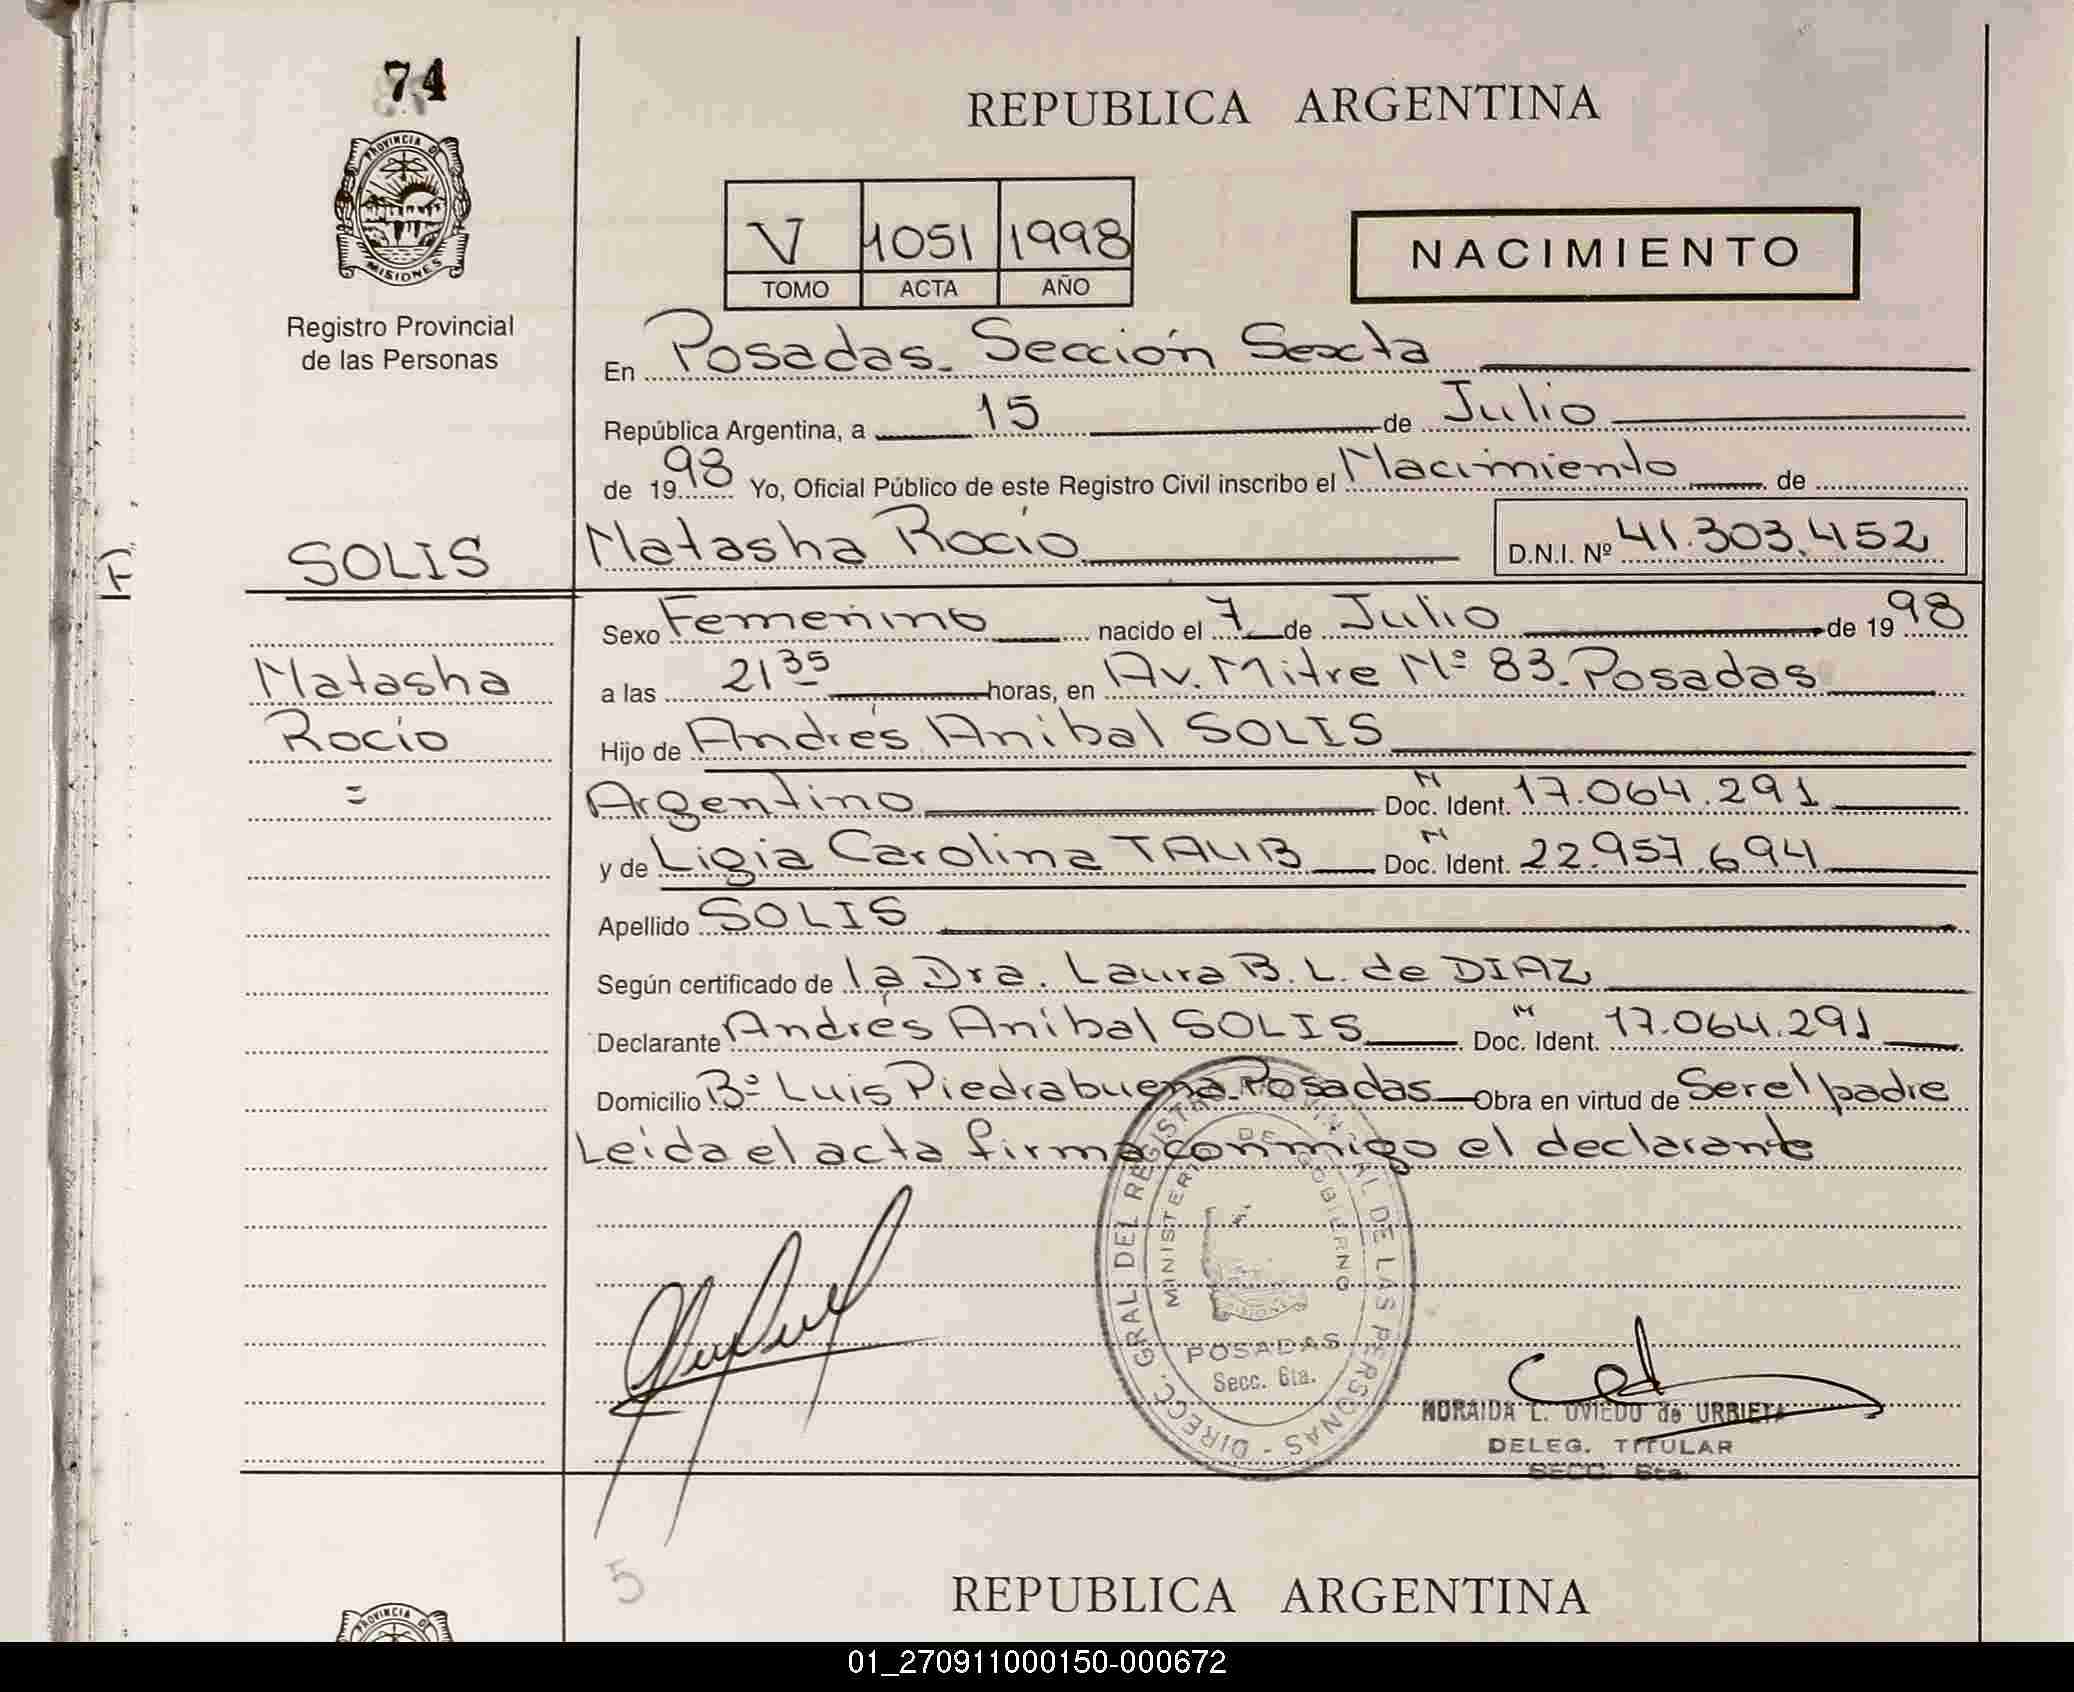 74
PROVINCIA DE
MISIONES
Registro Provincial
de las Personas
REPUBLICA ARGENTINA
V 1051 1998
TOMO ACTA AÑO
NACIMIENTO
En Posadas. Sección Sexta
República Argentina, a 15 de Julio
de 1998 Yo, Oficial Público de este Registro Civil inscribo el Nacimiento de
SOLIS Natasha Rocío D.N.I. Nº 41.303.452
Sexo Femenino nacido el 7 de Julio de 1998
Natasha
a las 21 35 horas, en Av. Mitre Nº 83. Posadas
Rocío
Hijo de Andrés Anibal SOLIS
=
Argentino Doc. Ident. N 17.064.291
y de Ligia Carolina TAUB Doc. Ident. N 22.957.694
Apellido SOLIS
Según certificado de la Dra. Laura B. L. de DIAZ
Declarante Andrés Anibal SOLIS Doc. Ident. N 17.064.291
Domicilio Bº Luis Piedrabuena. Posadas Obra en virtud de Ser el padre
Leida el acta firma conmigo el declarante
DIRECC. GRAL. DEL REGISTRO PROVINCIAL DE LAS PERSONAS -
MINISTERIO DE GOBIERNO
MISIONES
POSADAS
Secc. 6ta.
NORAIDA L. OVIEDO de URBIETA
DELEG. TITULAR
SECC. 6ta.
5
REPUBLICA ARGENTINA
PROVINCIA DE
01_270911000150-000672